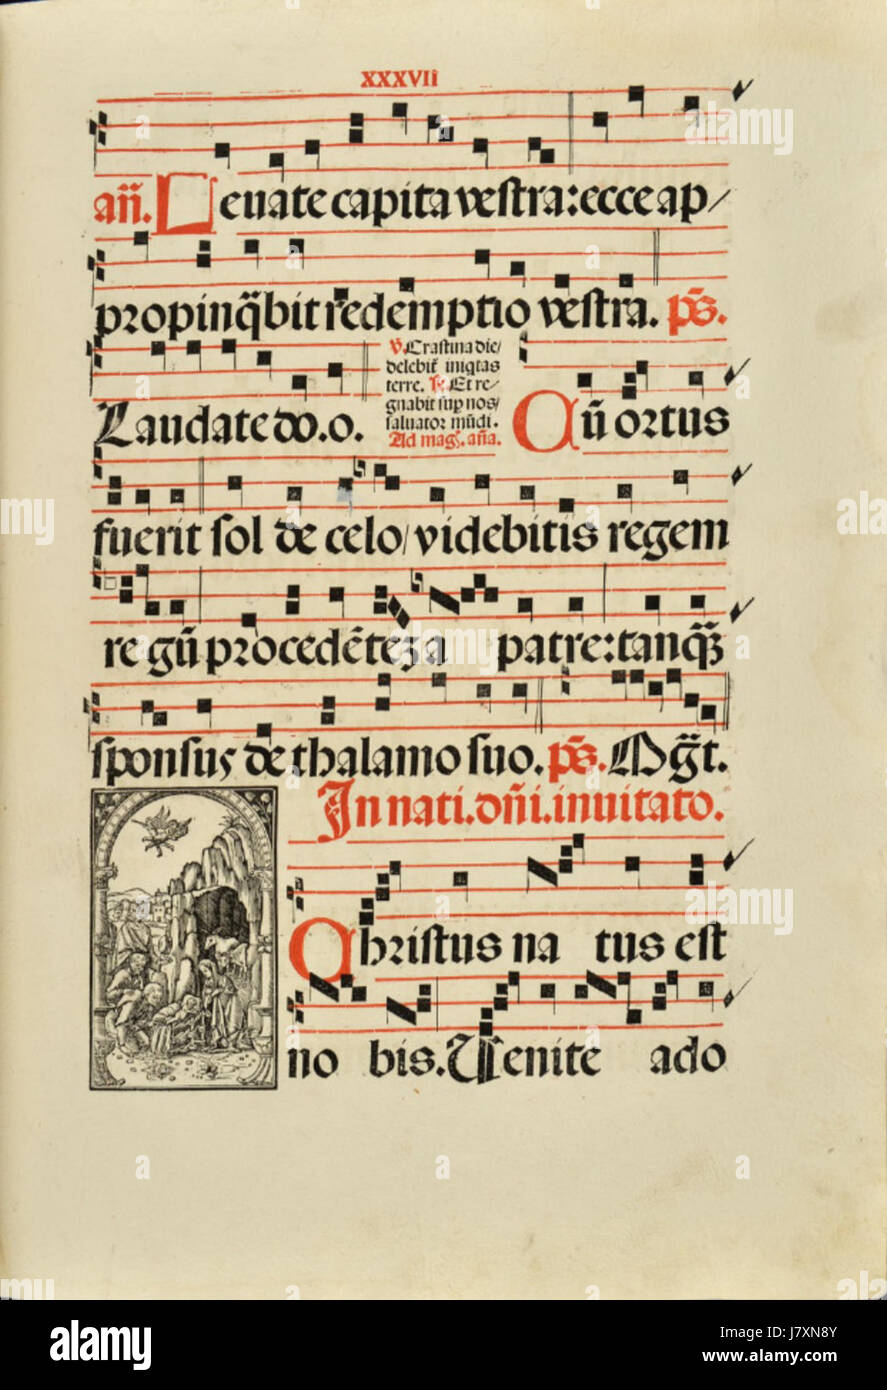 XXXVII
añ. Leuate capita vestra: ecce ap/
propinq̃bit redemptio vestra. ps̄.
Laudate do. o.
℣. Crastina die/
delebit̃ iniq̃tas
terre. ℟. Et re/
gnabit sup nos/
saluator mũdi.
Ad mag. aña.
Cũ ortus
fuerit sol de celo/ videbitis regem
regũ procedẽtez a patre: tanq̃
sponsus de thalamo suo. ps̄. Mg̃t.
In nati. dñi. inuitato.
Christus na tus est
no bis. Uenite ado
alamy
Image ID: J7XN8Y
www.alamy.com